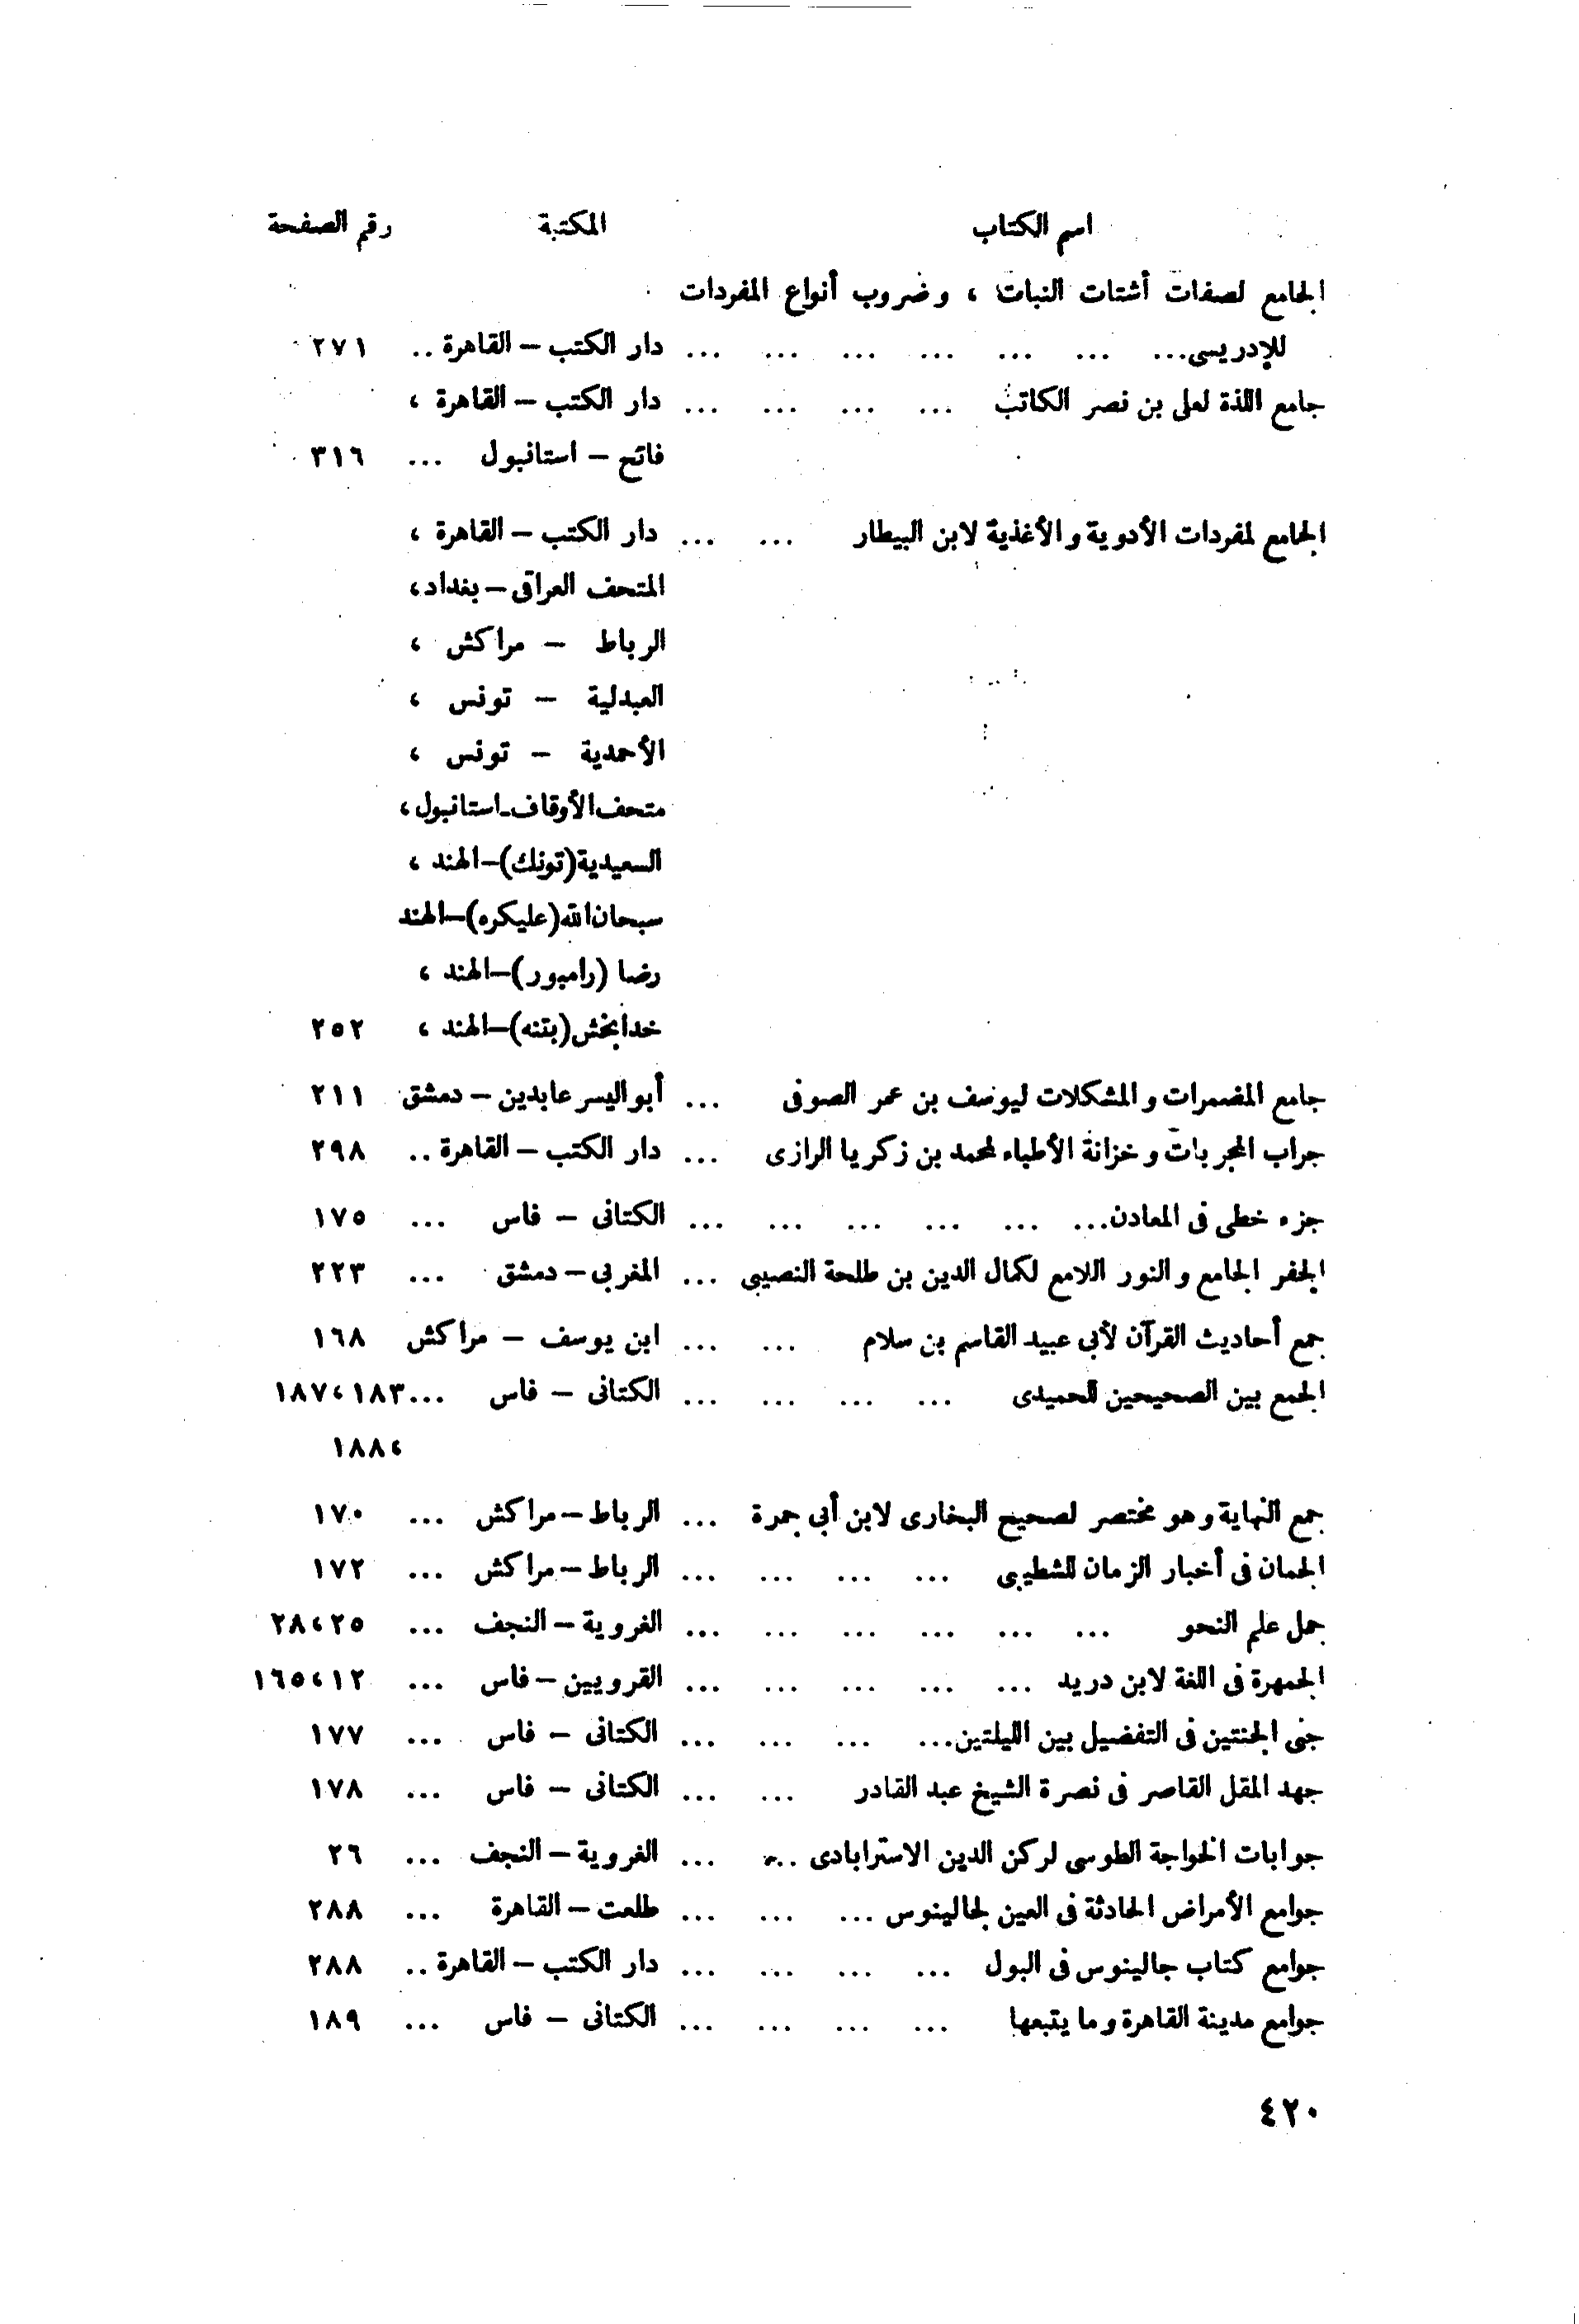 اسم الكتاب المكتبة رقم الصفحة
الجامع لصفات أشتات النبات ، وضروب أنواع المفردات
للإدريسى... ... ... ... ... ... ... دار الكتب – القاهرة .. ٢٧١
جامع اللذة لعلى بن نصر الكاتب ... ... ... ... دار الكتب – القاهرة ،
فاتح – استانبول ... ٣١٦
الجامع لمفردات الأدوية والأغذية لابن البيطار ... ... دار الكتب – القاهرة ،
المتحف العراقى – بغداد،
الرباط – مراكش ،
العبدلية – تونس ،
الأحمدية – تونس ،
متحف الأوقاف-استانبول،
السعيدية (تونك)–الهند ،
سبحان الله (عليكره)–الهند
رضا (رامبور)–الهند ،
خدابخش (بتنه)–الهند ، ٢٥٢
جامع المضمرات والمشكلات ليوسف بن عمر الصوفى ... أبو اليسر عابدين – دمشق ٢١١
جراب المجربات وخزانة الأطباء لمحمد بن زكريا الرازى ... دار الكتب – القاهرة .. ٢٩٨
جزء خطى فى المعادن... ... ... ... ... ... الكتانى – فاس ... ١٧٥
الجفر الجامع والنور اللامع لكمال الدين بن طلحة النصيبى ... المغربى – دمشق ... ٢٢٣
جمع أحاديث القرآن لأبى عبيد القاسم بن سلام ... ... ابن يوسف – مراكش ١٦٨
الجمع بين الصحيحين للحميدى ... ... ... ... الكتانى – فاس ...١٨٣،١٨٧
،١٨٨
جمع النهاية وهو مختصر لصحيح البخارى لابن أبى جمرة ... الرباط – مراكش ... ١٧٠
الجمان فى أخبار الزمان للشطيبى ... ... ... ... الرباط – مراكش ... ١٧٢
جمل علم النحو ... ... ... ... ... ... الغروية – النجف ... ٢٥،٢٨
الجمهرة فى اللغة لابن دريد ... ... ... ... ... القرويين – فاس ... ١٢،١٦٥
جنى الجنتين فى التفضيل بين الليلتين... ... ... ... الكتانى – فاس ... ١٧٧
جهد المقل القاصر فى نصرة الشيخ عبد القادر ... ... الكتانى – فاس ... ١٧٨
جوابات الخواجة الطوسى لركن الدين الاسترابادى ... ... الغروية – النجف ... ٢٦
جوامع الأمراض الحادثة فى العين لجالينوس ... ... ... طلعت – القاهرة ... ٢٨٨
جوامع كتاب جالينوس فى البول ... ... ... ... دار الكتب – القاهرة .. ٢٨٨
جوامع مدينة القاهرة وما يتبعها ... ... ... ... الكتانى – فاس ... ١٨٩
٤٢٠